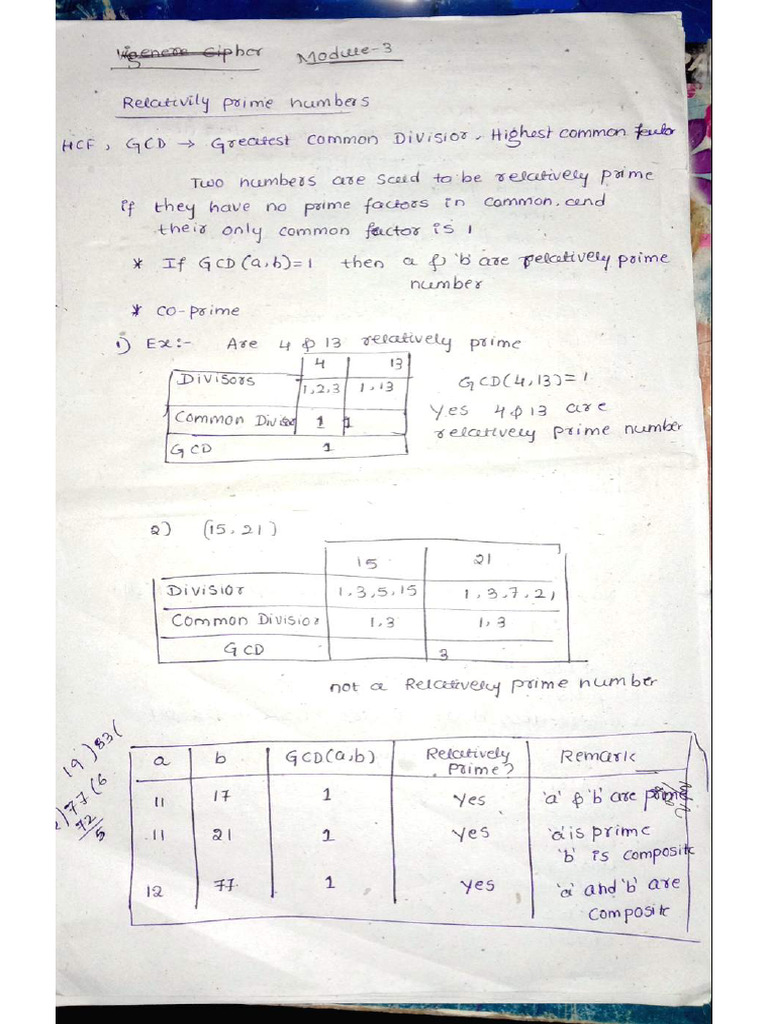 Vigenere Cipher Module-3
Relativily prime numbers
HCF, GCD → Greatest Common Divisior. Highest common
Two numbers are said to be relatively prime
if they have no prime factors in common. and
their only common factor is 1
* If GCD (a,b)=1 then a & 'b' are relatively prime
number
* co-prime
1) Ex:- Are 4 & 13 relatively prime
4 13
Divisors 1,2,3 1,13
GCD(4,13)=1
Common Divisor 1 1
Yes 4 & 13 are
relatively prime number
GCD 1
2) (15,21)
15 21
Divisior 1,3,5,15 1,3,7,21
Common Divisior 1,3 1,3
GCD 3
not a Relatively prime number
19)83(
77(6
72
5
a b GCD(a,b) Relatively Prime? Remark
11 17 1 Yes 'a' & 'b' are prime
11 21 1 Yes 'a' is prime
'b' is composite
12 77 1 Yes 'a' and 'b' are
composite